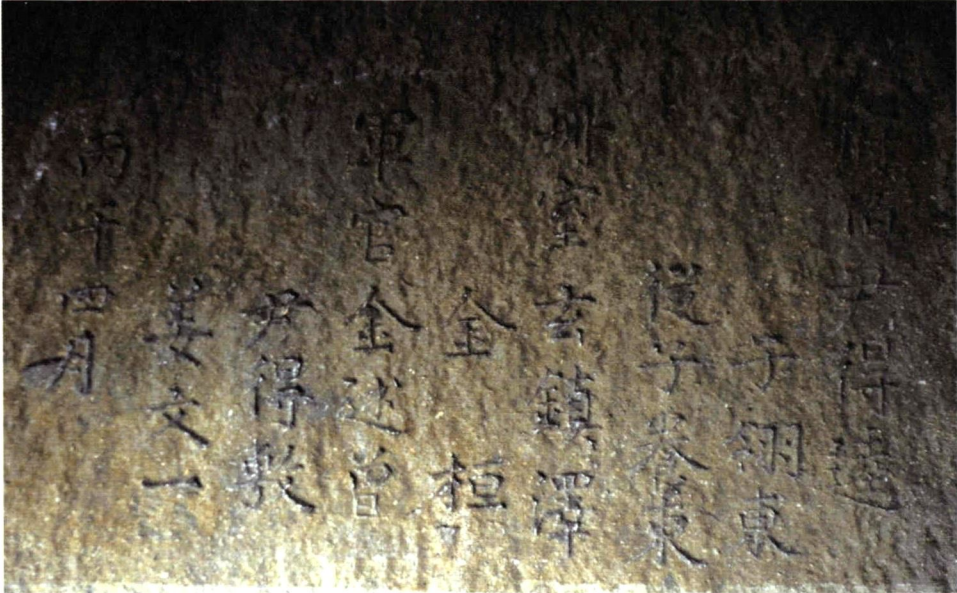 尹得逵
子翊東
從子養東
判官玄鎮澤
金桓
軍官金述曾
尹得敦
姜文一
丙午四月